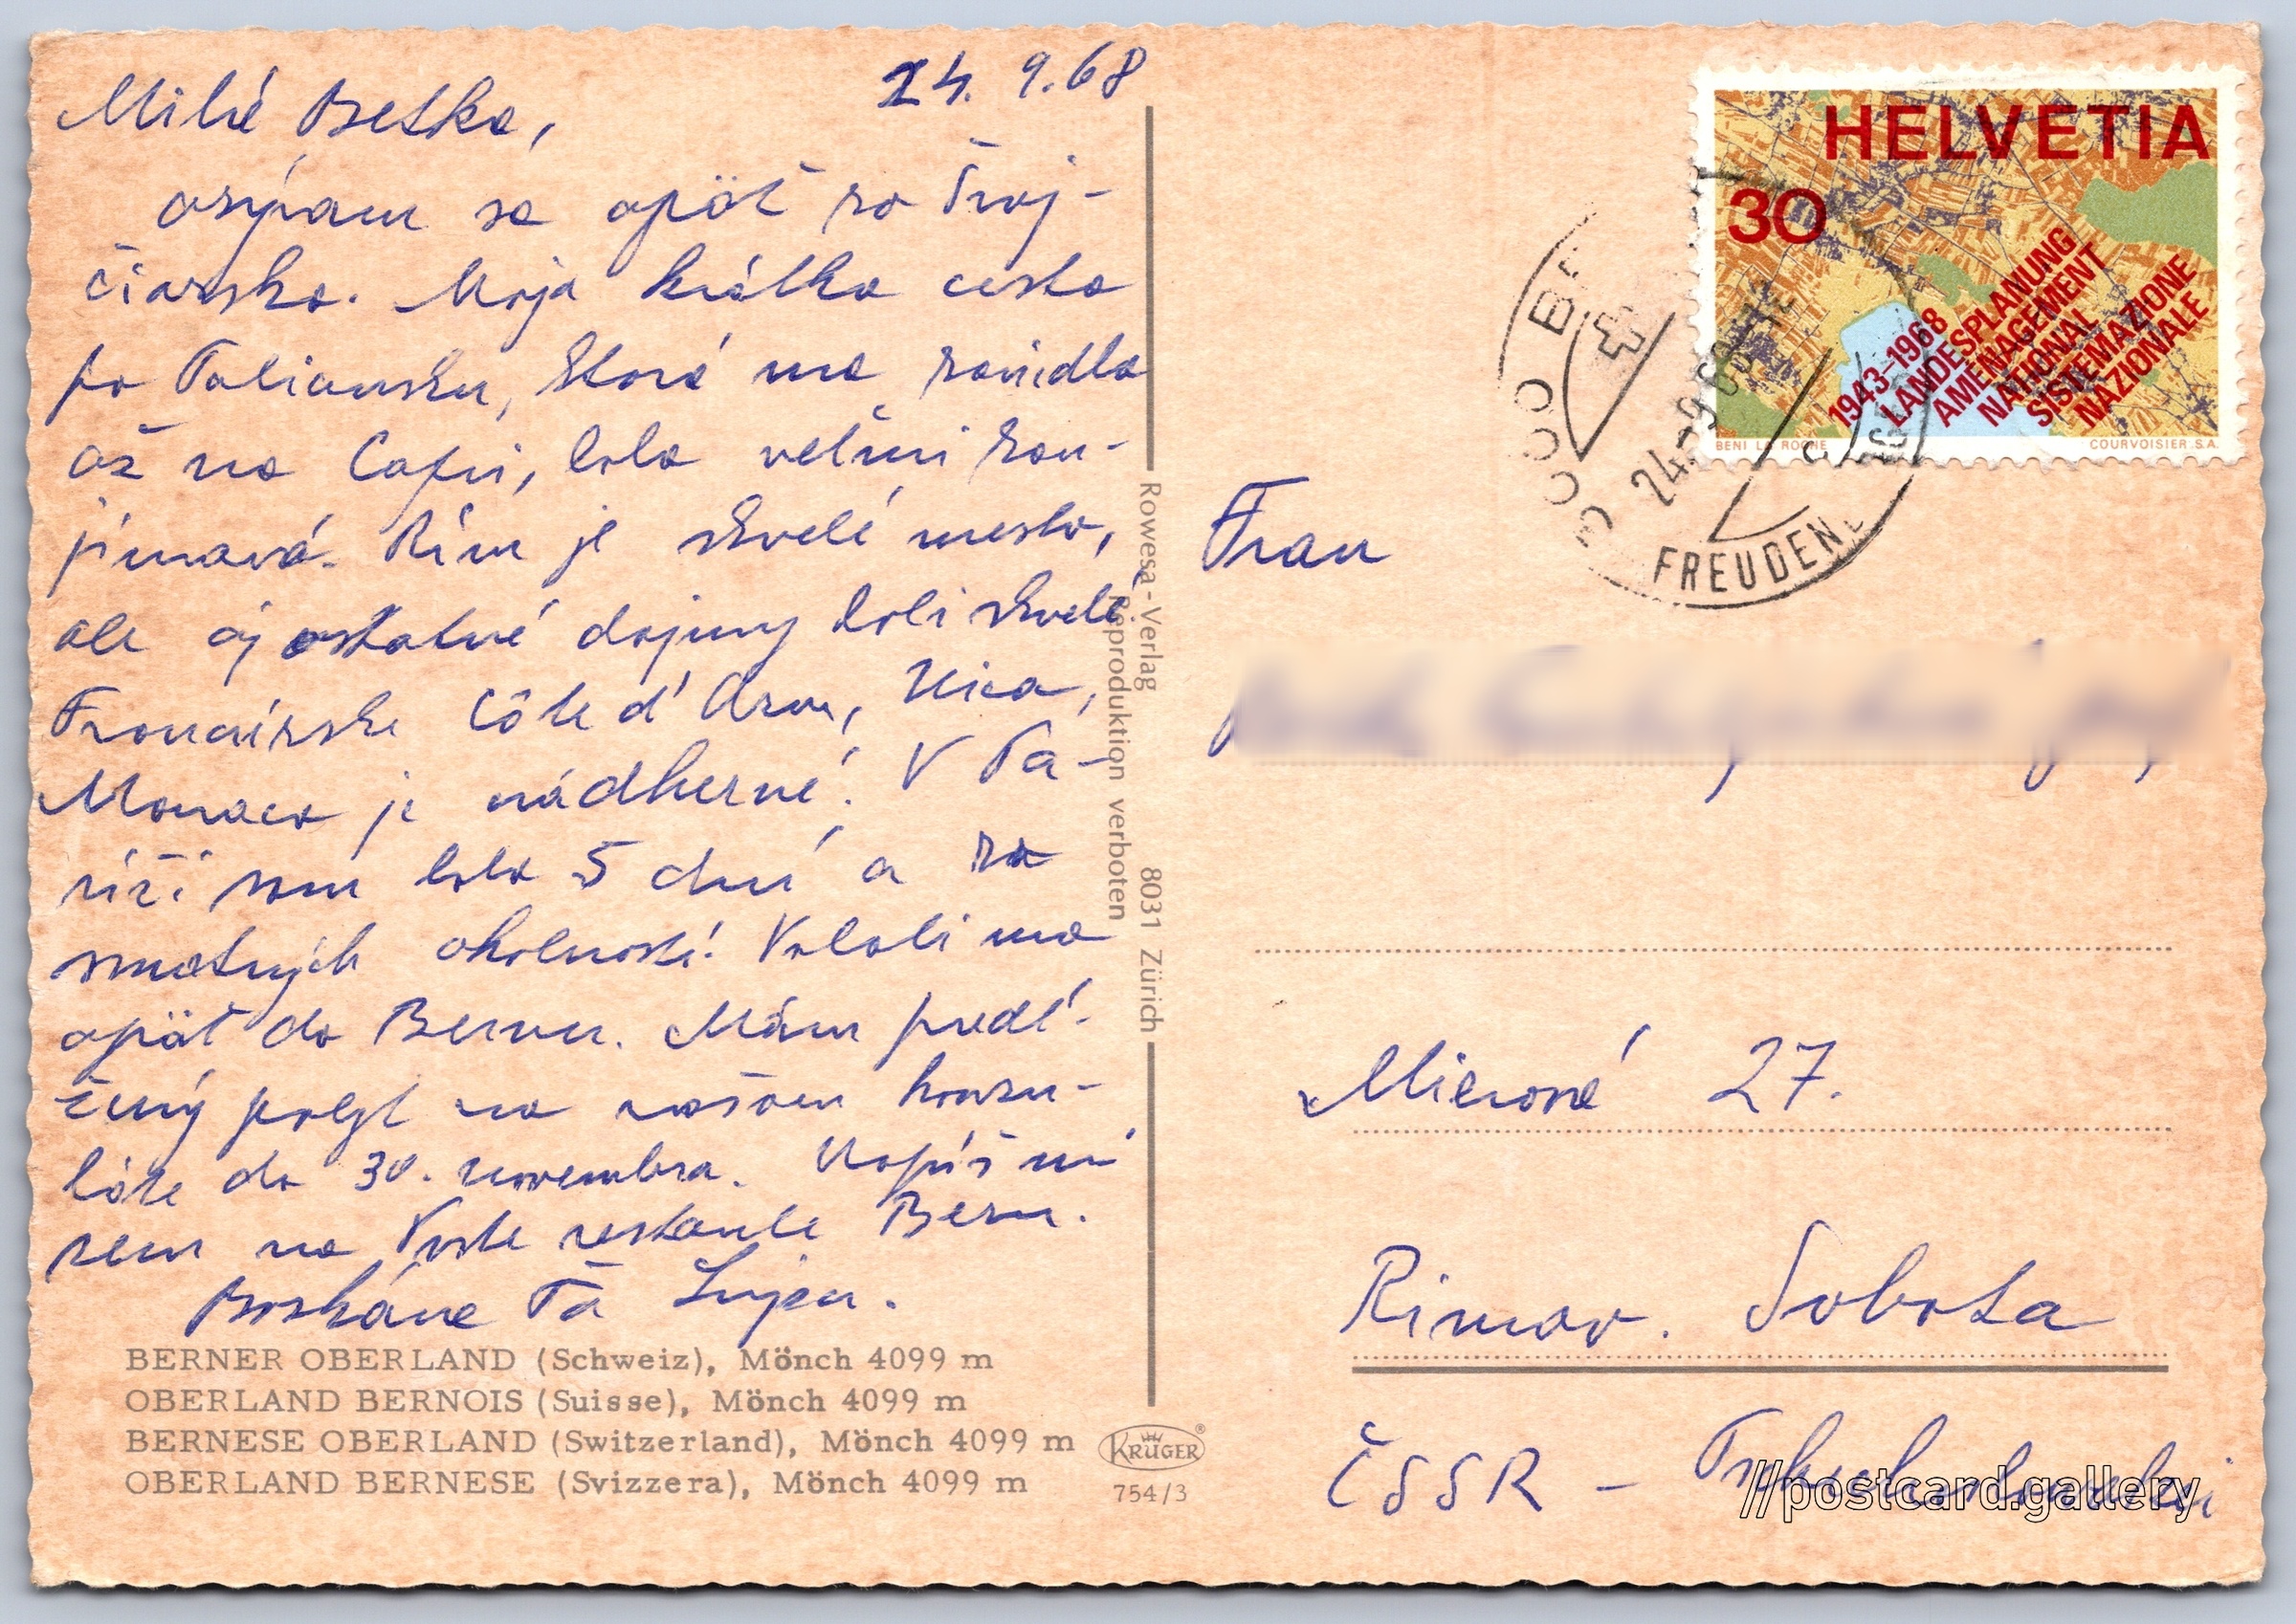 24. 9.68
Milá Betka,
ozývam sa opäť zo Švaj-
čiarska. Moja krátka cesta
po Taliansku, ktorá ma zaviedla
až na Capri, bola veľmi zau-
jímavá. Rím je skvelé mesto,
ale aj ostatné dojmy boli skvelé
Francúzske Côte d'Azur, Nica,
Monaco je nádherné! V Pa-
ríži som bola 5 dní a za
smutných okolností! Volali ma
opäť do Bernu. Mám predĺ-
žený pobyt na našom konzu-
láte do 30. novembra. Napíš mi
sem na Poste restante Bern.
Bozkáva Ťa
BERNER OBERLAND (Schweiz), Mönch 4099 m
OBERLAND BERNOIS (Suisse), Mönch 4099 m
BERNESE OBERLAND (Switzerland), Mönch 4099 m
OBERLAND BERNESE (Svizzera), Mönch 4099 m
Rowesa-Verlag 8031 Zürich
Reproduktion verboten
KRÜGER
754/3
HELVETIA
30
1943–1968
LANDESPLANUNG
AMENAGEMENT
NATIONAL
SISTEMAZIONE
NAZIONALE
BENI LA ROCHE COURVOISIER S.A.
24.-9.68
FREUDEN
Frau
Mierová 27.
Rimav. Sobota
ČSSR -
//postcard.gallery